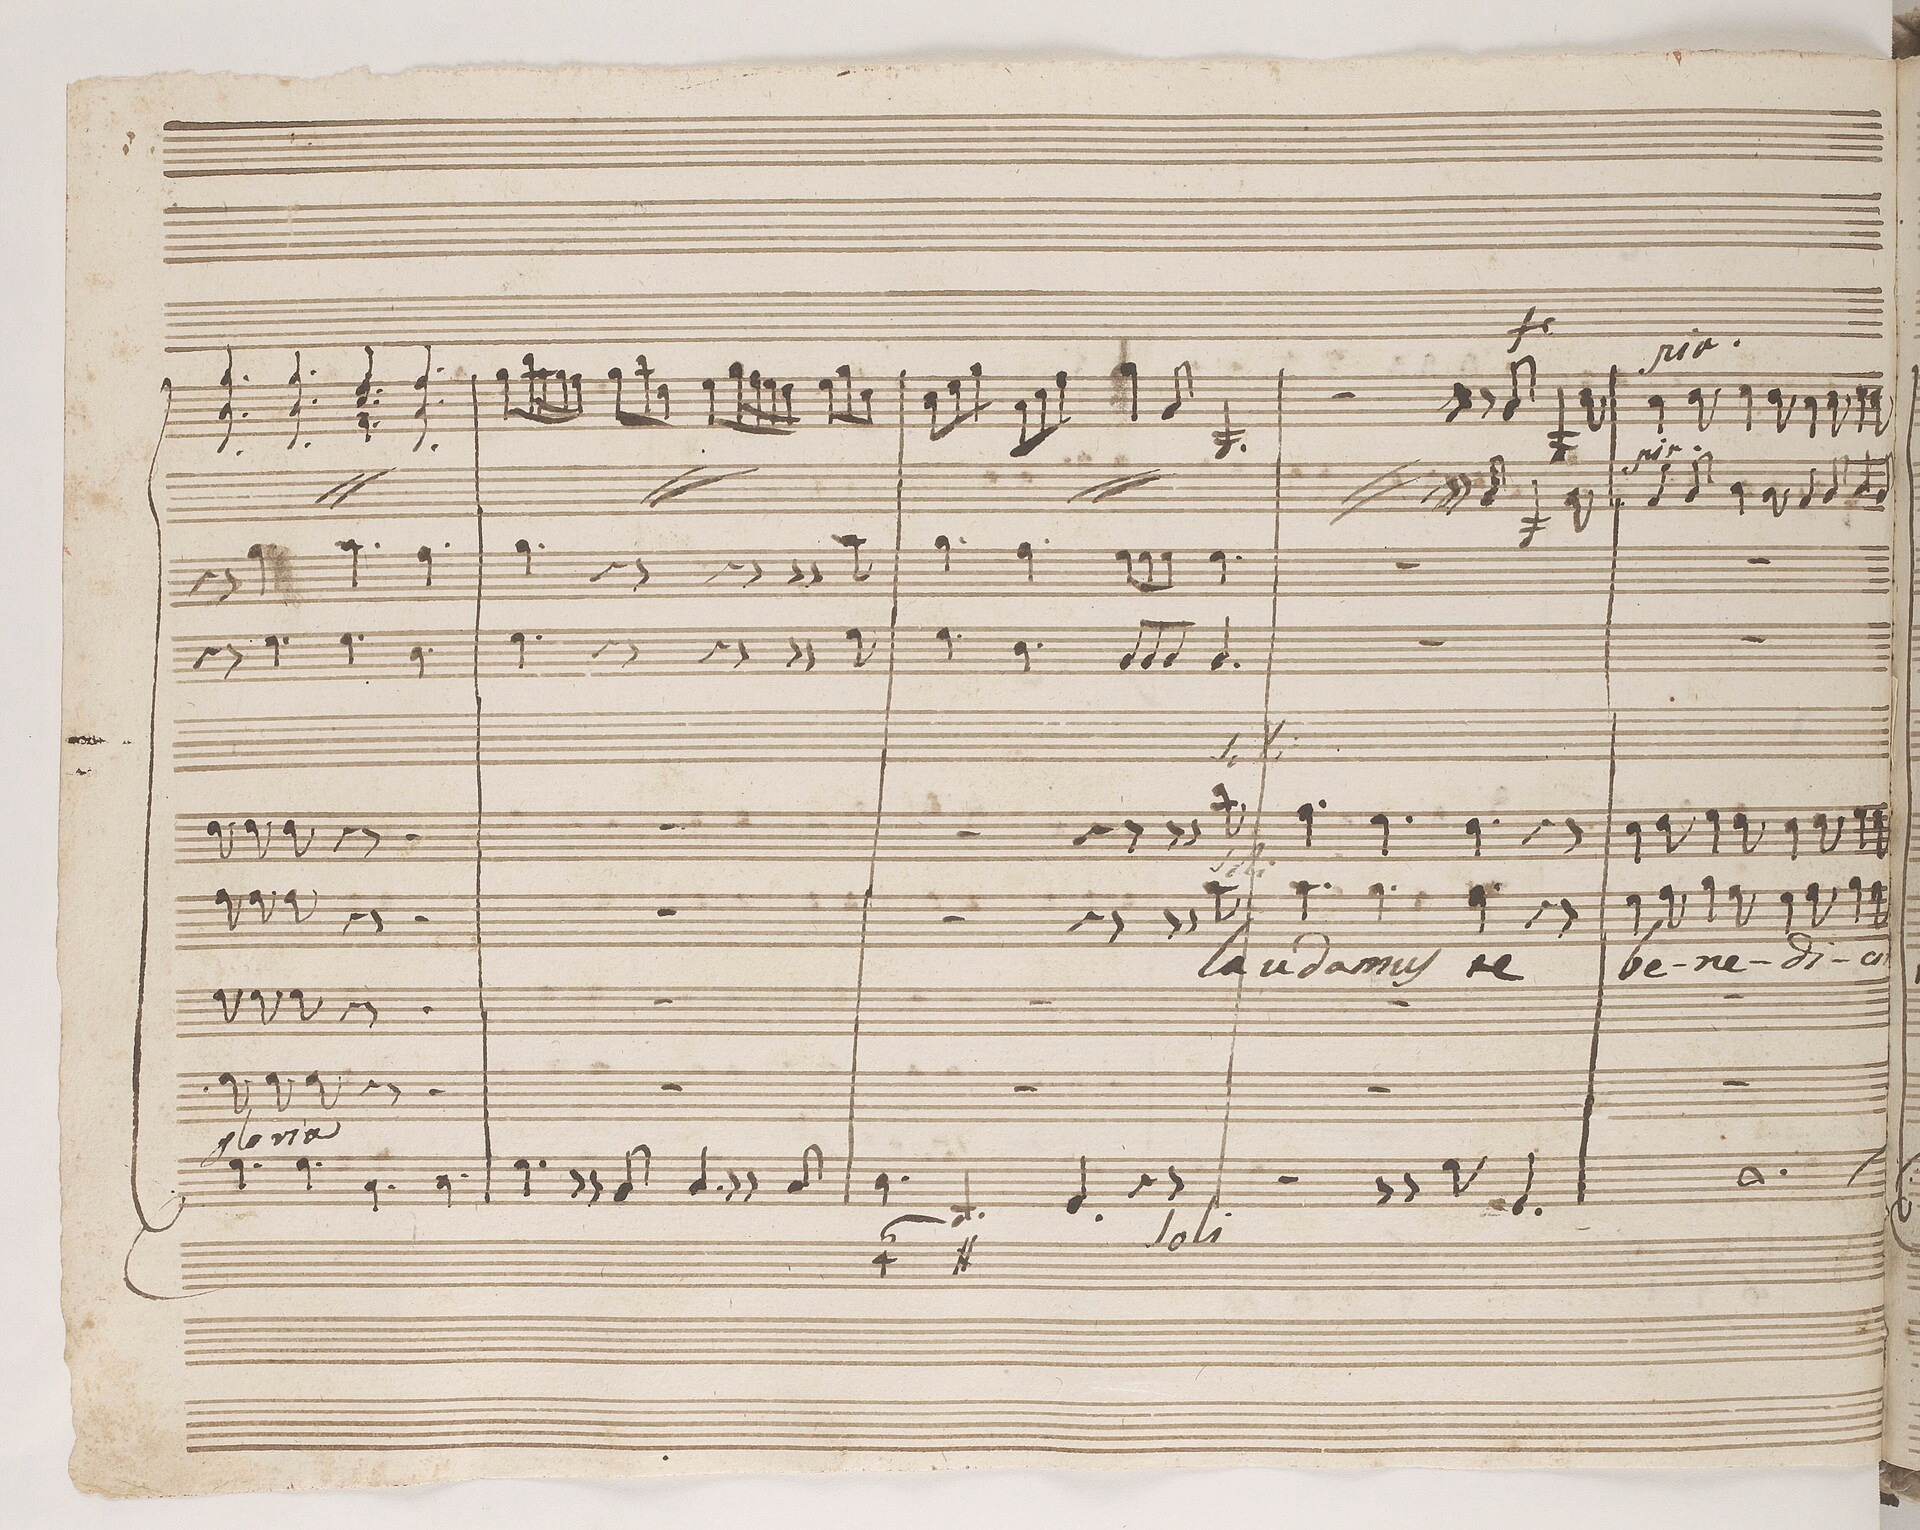 fe
pia.
pia.
Soli
laudamus te be-ne-di-ci
gloria
soli
6
4 #